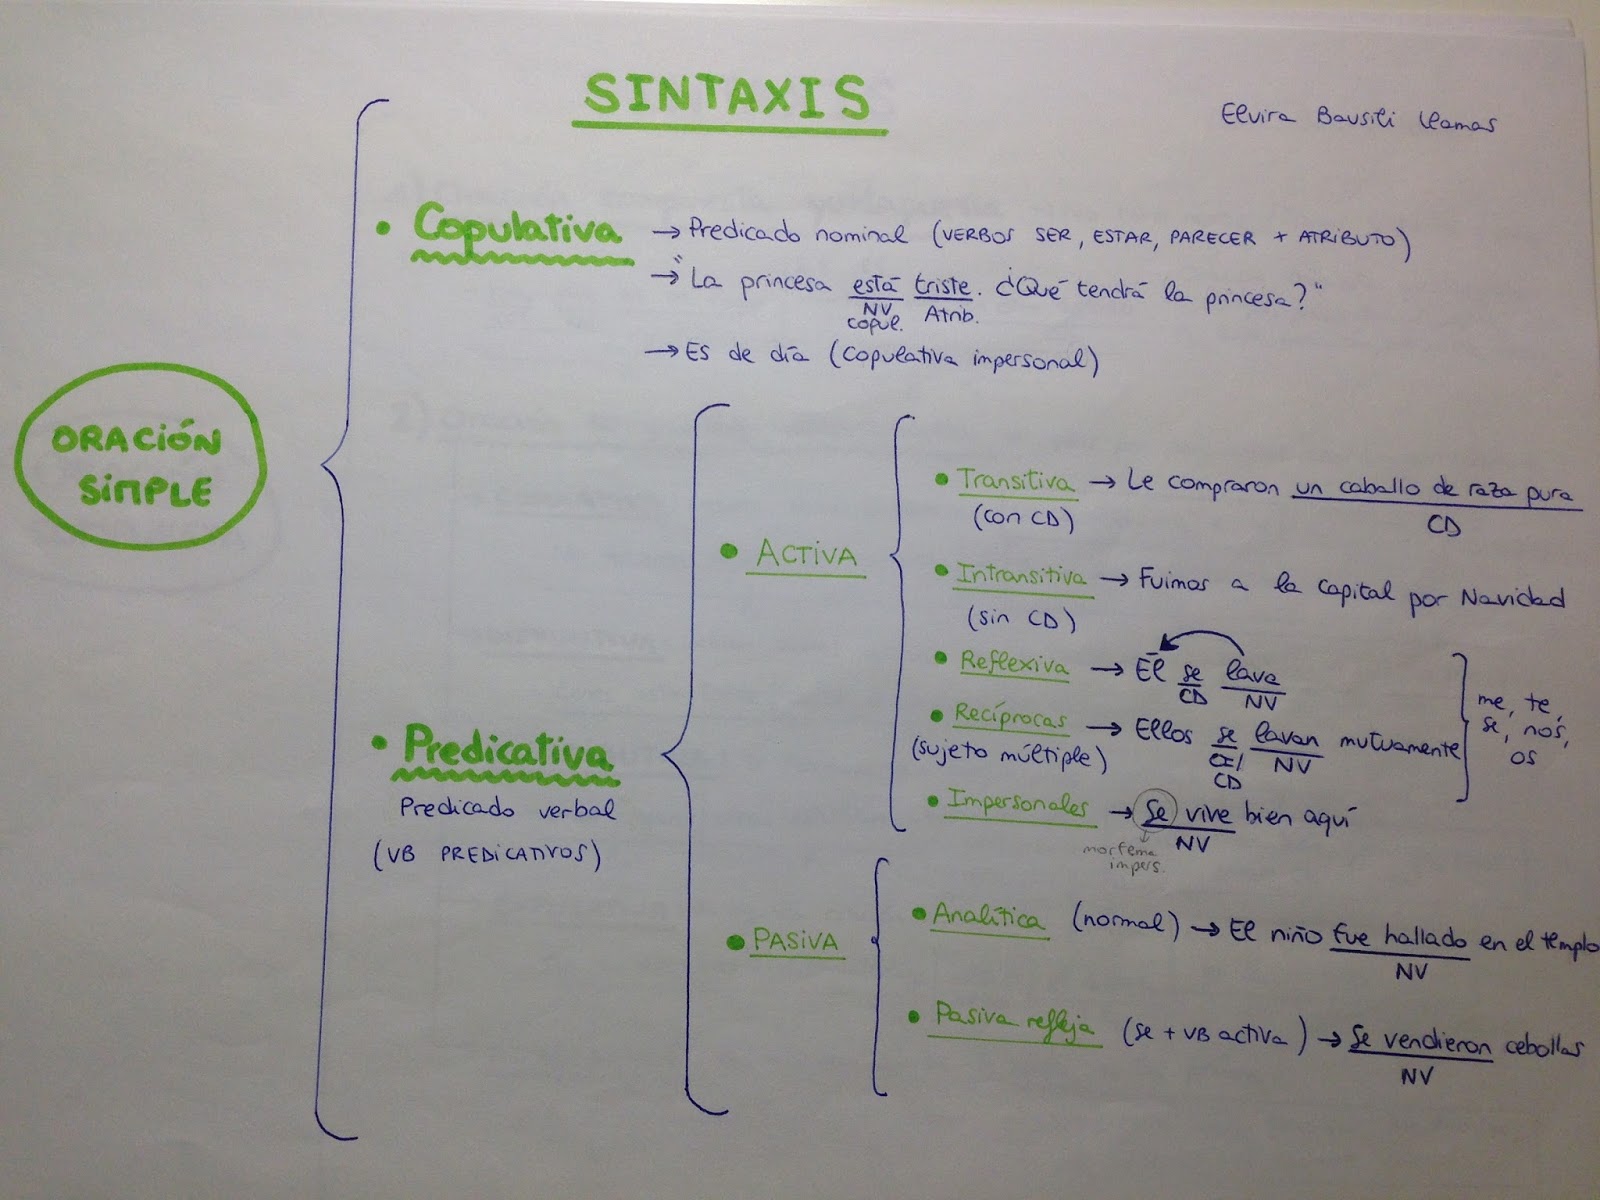 SINTAXIS
Elvira Bausili Llamas
ORACIÓN
SIMPLE
• Copulativa → Predicado nominal (VERBOS SER, ESTAR, PARECER + ATRIBUTO)
→ "La princesa está triste. ¿Qué tendrá la princesa?"
NV Atrib.
copul.
→ Es de día (copulativa impersonal)
• Predicativa
Predicado verbal
(VB PREDICATIVOS)
• ACTIVA
• Transitiva → Le compraron un caballo de raza pura
(con CD) CD
• Intransitiva → Fuimos a la capital por Navidad
(sin CD)
• Reflexiva → Él se lava
CD NV
• Recíprocas → Ellos se lavan mutuamente
(sujeto múltiple) NV
CD
me, te,
se, nos,
os
• Impersonales → Se vive bien aquí
NV
morfema
impers.
• PASIVA
• Analítica (normal) → El niño fue hallado en el templo
NV
• Pasiva refleja (se + VB activa) → Se vendieron cebollas
NV